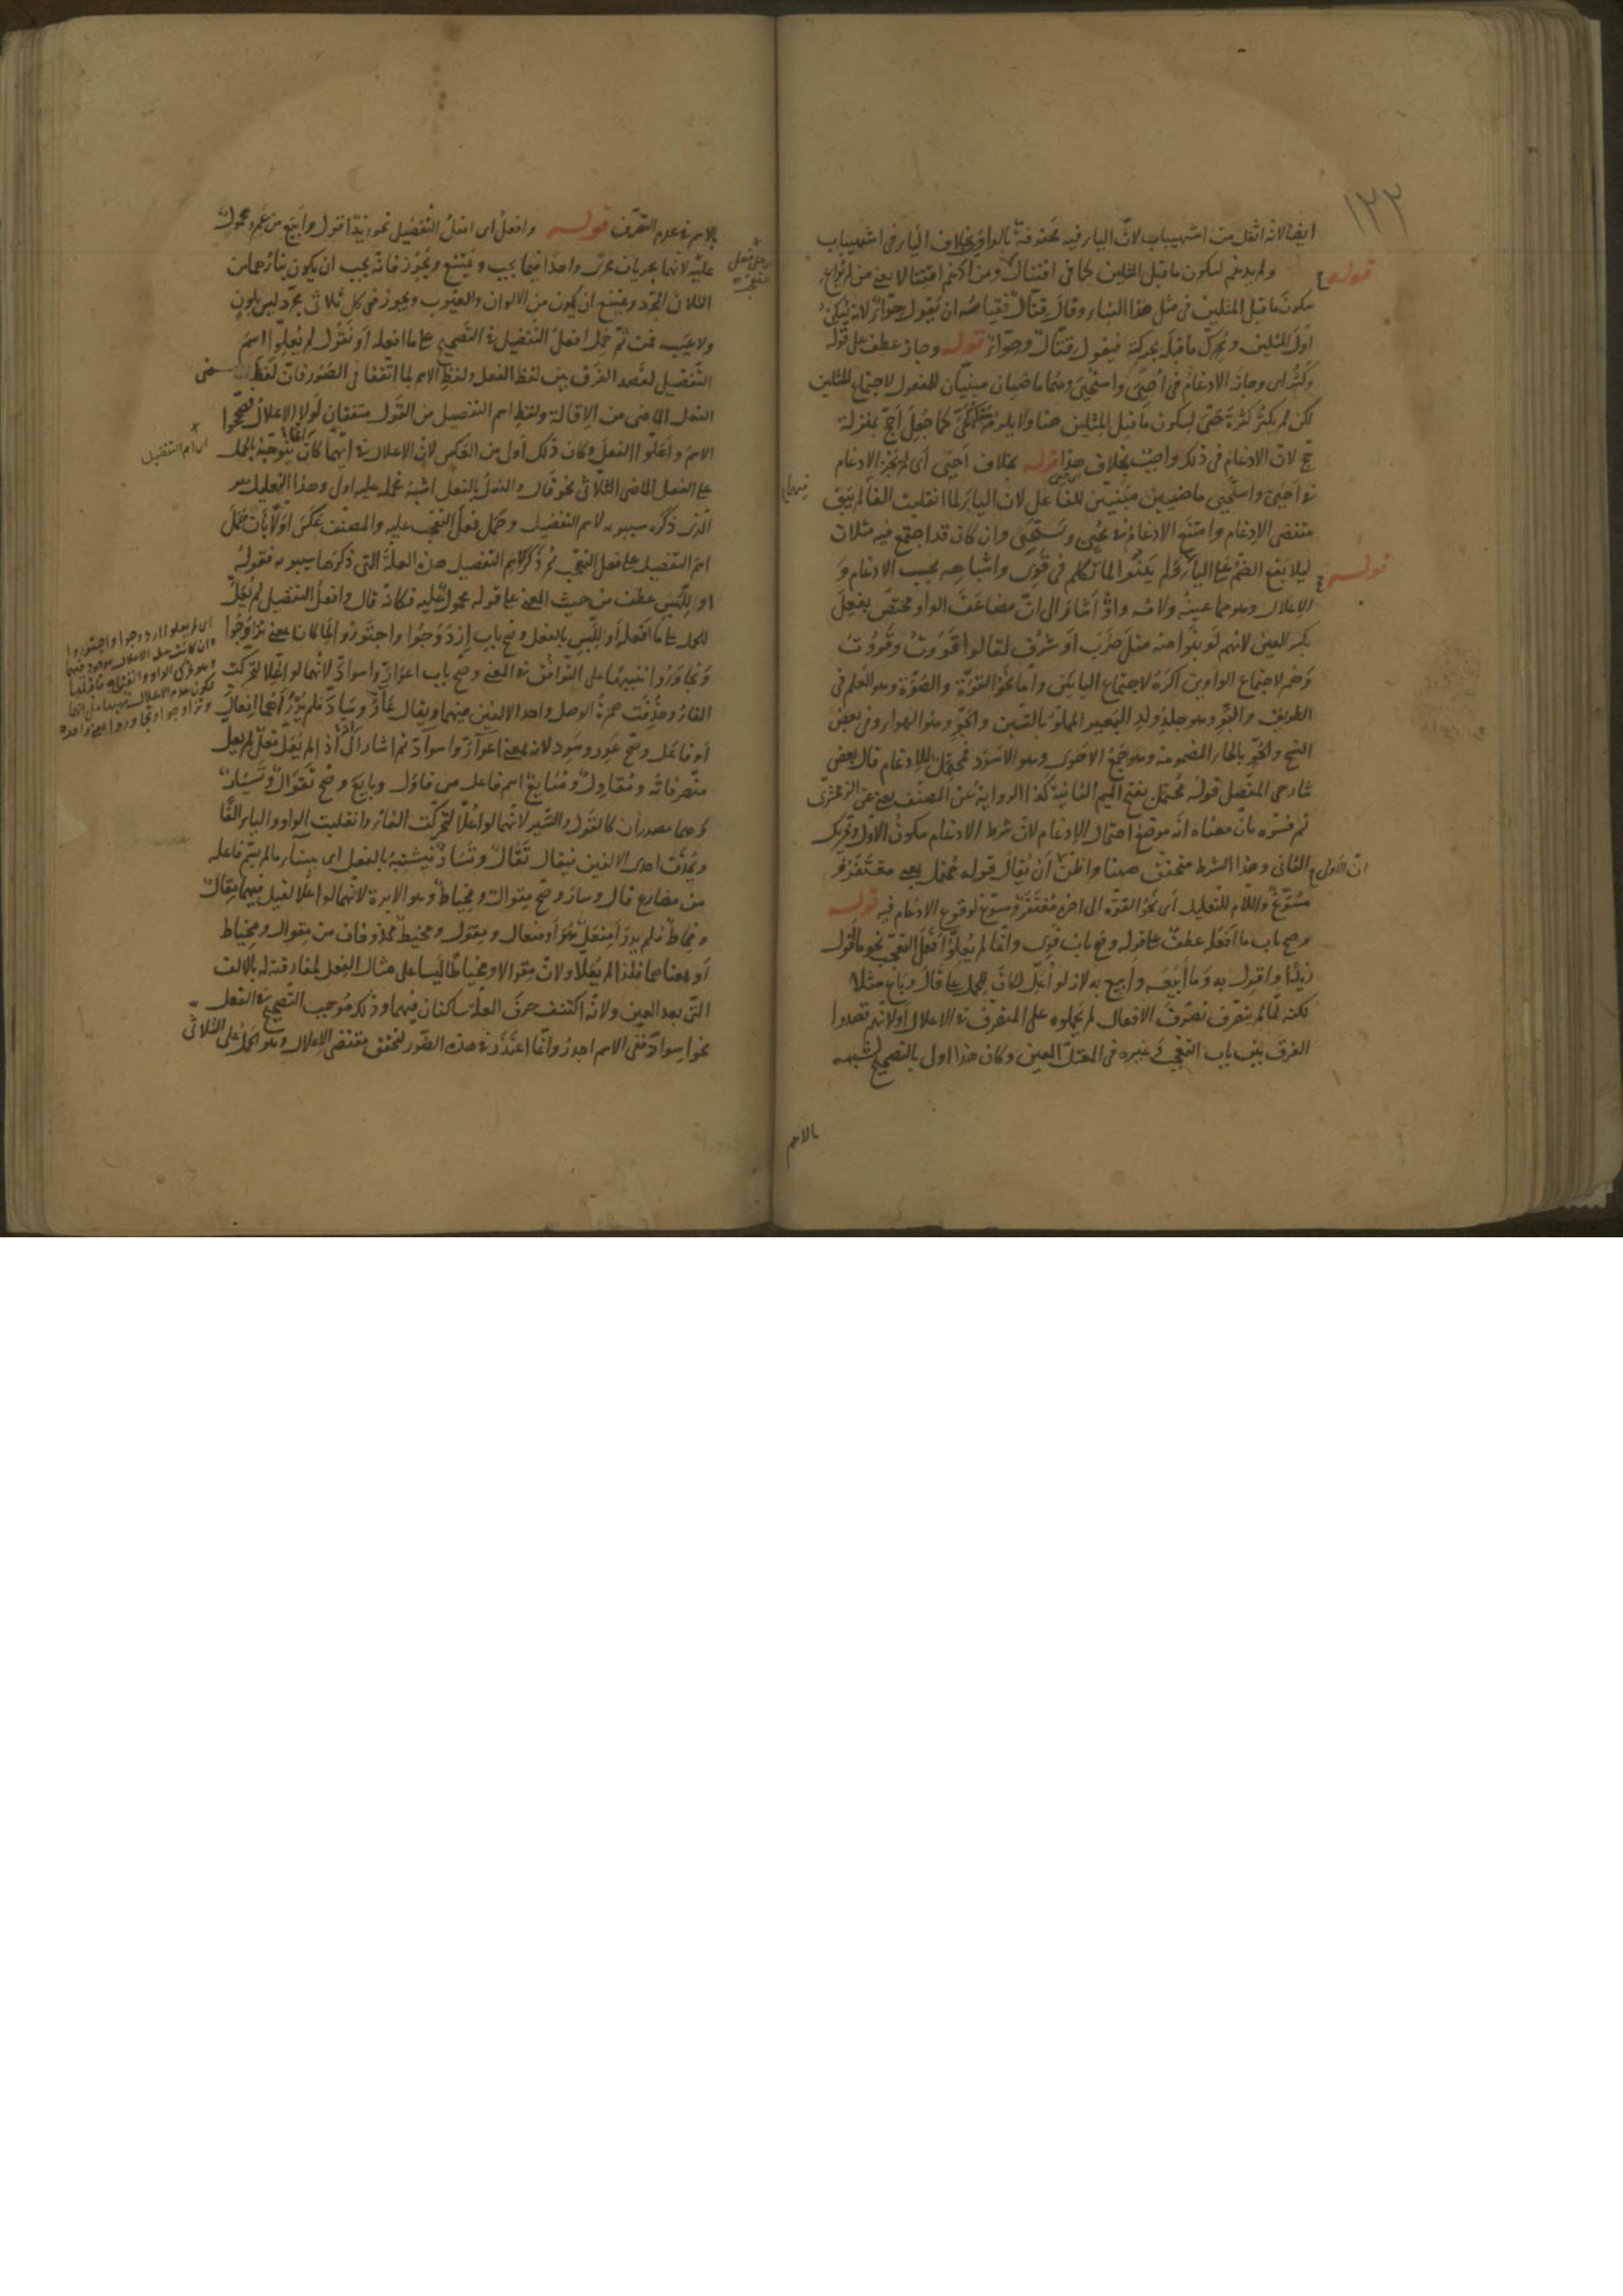 ١٢٢
ايضا لانه اثقل من اشهيباب لان الياء فيه محذوفة بالواو بخلاف الياء في اشهيباب
قوله ولم يدغم لسكون ما قبل المثلين كما في اقتتال ومن ادغم اقتتالا يعني من لم يراع
سكون ما قبل المثلين في مثل هذا البناء وقال قتال فقياسه ان يقول حوّاء لانه يسكن
اول المثلين ويحرك ما قبله بحركته فيقول قتال وحواء قوله وجاز عطف على قوله
وكثر اى وجاز الادغام في احيى واستحيى وهما ماضيان مبنيان للمفعول لاجتماع المثلين
لكن لم يكثر كثرة حيى لسكون ما قبل المثلين هنا ولا يلزم
حج لان الادغام في ذلك واجب بخلاف هذا قوله بخلاف احيى اى لم يجز الادغام
في احيى واستحيى ماضيين مبنيين للفاعل لان الياء لما انقلبت الفا لم يبق
مقتضى الادغام وامتنع الادغام في يحيى ويستحيى وان كان قد اجتمع فيه مثلان
قوله ليلا يقع الضم على الياء ولم يبنوا لما تكلم في قوى واشباهه بحسب الادغام و
الاعلال وهو مما عينه ولامه واو اشار الى ان مضاعف الواو مختص بفعل
بكسر العين لانهم لو بنوا منه مثل ضرب او شرف لقالوا قووت وقووت
وهم لاجتماع الواوين اكره لاجتماع اليائين واما نحو القوة والصوة وهو العلم في
الطريق والبو وهو جلد ولد البعير المملو بالتبن والجو وهو الهواء وفي بعض
النسخ والحو بالحاء المضمومة وهو جمع الاحوى وهو الاسود فمحتمل للادغام قال بعض
شارحى المفصل قوله محتمل بفتح الميم الثانية كذا الرواية عن المصنف يعني عن الزمخشرى
ثم فسره بان معناه انه موضع احتمال الادغام لان شرط الادغام سكون الاول وتحريك
الثانى وهذا الشرط متحقق ههنا واظن ان يقال قوله محتمل يعني مغتفر و
مسوّغ واللام للتعليل اى نحو القوة الى اخره مغتفر وسوغ لوقوع الادغام فيه قوله
وصح باب ما افعله عطف على قوله وصح باب قوى وانما لم يعلوا افعل التعجب نحو ما اقول
زيدا واقول به وما ابيعه وابيع به لانه لو اعل لكان للحمل على قال وباع مثلا
لكنه لما لم يتصرف تصرف الافعال لم يحملوه على المتصرف في الاعلال اولانهم قصدوا
الفرق بين باب التعجب وغيره في المعتل العين وكان هذا اولى بالتصحيح لشبهه
بالاسم
بالاسم في عدم التصرف قوله وافعل اى افعل التفضيل نحو زيد اقول وابيع من عمرو محمول
عليه لانهما يجريان مجرى واحدا فيما يجب ويمتنع ويجوز فانه يجب ان يكون بناؤهما من
الثلاثى المجرد ويمتنع ان يكون من الالوان والعيوب ويجوز في كل ثلاثى مجرد ليس بلون
ولا عيب فمن ثم حمل افعل التفضيل في التصحيح على ما افعله او نقول لم يعلوا اسم
التفضيل لقصد الفرق بين لفظ الفعل ولفظ الاسم لما اتفقا في الصور فان لفظ
الفعل الماضى من الاقالة ولفظ اسم التفضيل من القول متفقان لولا الاعلال فصححوا
الاسم واعلوا الفعل وكان ذلك اولى من العكس لان الاعلال في ايهما كان يتوجه للحمل
على الفعل الماضى الثلاثى نحو قال والفعل بالفعل اشبه فحمله عليه اولى وهذا التعليل هو
الذى ذكره سيبويه لاسم التفضيل وحمل فعل التعجب عليه والمصنف عكس اولا بان حمل
اسم التفضيل على فعل التعجب ثم ذكر لاسم التفضيل هذه العلة التى ذكرها سيبويه فقوله
او للبس عطف من حيث المعنى على قوله محمول عليه فكانه قال وافعل التفضيل لم يعل
للحمل على ما افعله او للبس بالفعل وصح باب ازدوجوا واجتوروا لما كانا بمعنى تزاوجوا
وتجاوروا تنبيها على التوافق في المعنى وصح باب اعوار واسواد لانهما لو اعلا لتحركت
الفاء وحذفت همزة الوصل واحد الالفين منهما ويقال عار وساد فلم يدر اهما افعال
او فاعل وصح عور وسود لانه بمعنى اعوار واسواد ثم اشار الى انه اذا لم يعل فعل لم يعل
متصرفاته ومقاول ومبايع اسم فاعل من قاول وبايع وصح تقوال وتسيار
وهما مصدران كالقول والسير لانهما لو اعلا لتحركت الفاء وانقلبت الواو والياء الفا
ويحذف احدى الالفين فيقال تقال وتسار فيشتبه بالفعل اى ببناء ما لم يسم فاعله
من مضارع قال وسار وصح مقوال ومخياط وهو الابرة لانهما لو اعلا لقيل فيهما مقال
ومخاط فلم يدر امفعل هو او مفعال ومقول ومخيط محذوفان من مقوال ومخياط
او بمعناهما فلذا لم يعلا ولان مقوالا ومخياطا ليسا على مثال الفعل لمفارقته له بالالف
التى بعد العين ولانه اكتنف حرف العلة ساكنان فيهما وذلك موجب التصحيح في الفعل
نحو اسواد ففى الاسم اجدر وانما اعتذر في هذه الصور لتحقق مقتضى الاعلال وهو الحمل على الثلاثى
اى اسم التفضيل